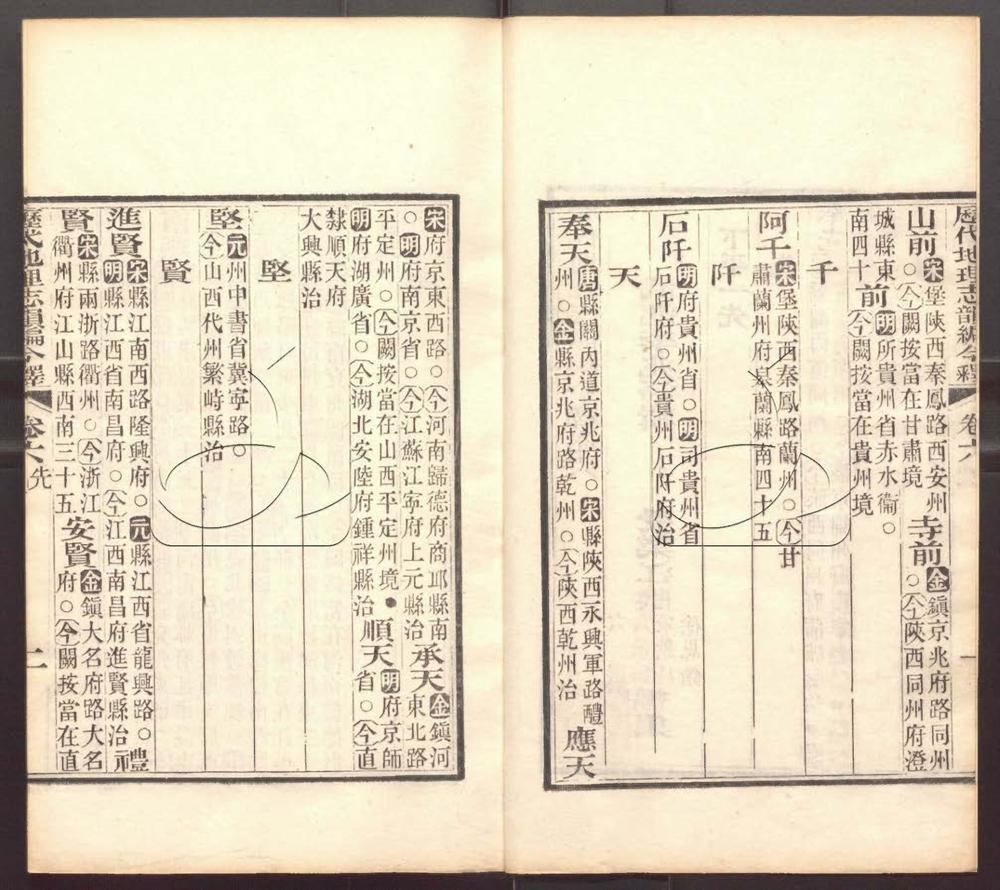 歷代地理志韻編今釋 卷六 一
山前 宋堡陝西秦鳳路西安州
○今闕按當在甘肅境 寺前 金鎮京兆府路同州
○今陝西同州府澄
城縣東 前 明所貴州省赤水衞○
南四十 今闕按當在貴州境
千
阿千 宋堡陝西秦鳳路蘭州○今甘
肅蘭州府皋蘭縣南四十五
阡
石阡 明府貴州省○明司貴州省
石阡府○今貴州石阡府治
天
奉天 唐縣關內道京兆府○宋縣陝西永興軍路醴
州○金縣京兆府路乾州○今陝西乾州治 應天
宋府京東西路○今河南歸德府商邱縣南
○明府南京省○今江蘇江寧府上元縣治 承天 金鎮河
東北路
平定州○今闕按當在山西平定州境●
明府湖廣省○今湖北安陸府鍾祥縣治 順天 明府京師
省○今直
隸順天府
大興縣治
堅
堅 元州中書省冀寧路○
今山西代州繁峙縣治
賢
進賢 宋縣江南西路隆興府○元縣江西省龍興路○
明縣江西省南昌府○今江西南昌府進賢縣治 禮
賢 宋縣兩浙路衢州○今浙江
衢州府江山縣西南三十五 安賢 金鎮大名府路大名
府○今闕按當在直
歷代地理志韻編今釋 卷六 先 二